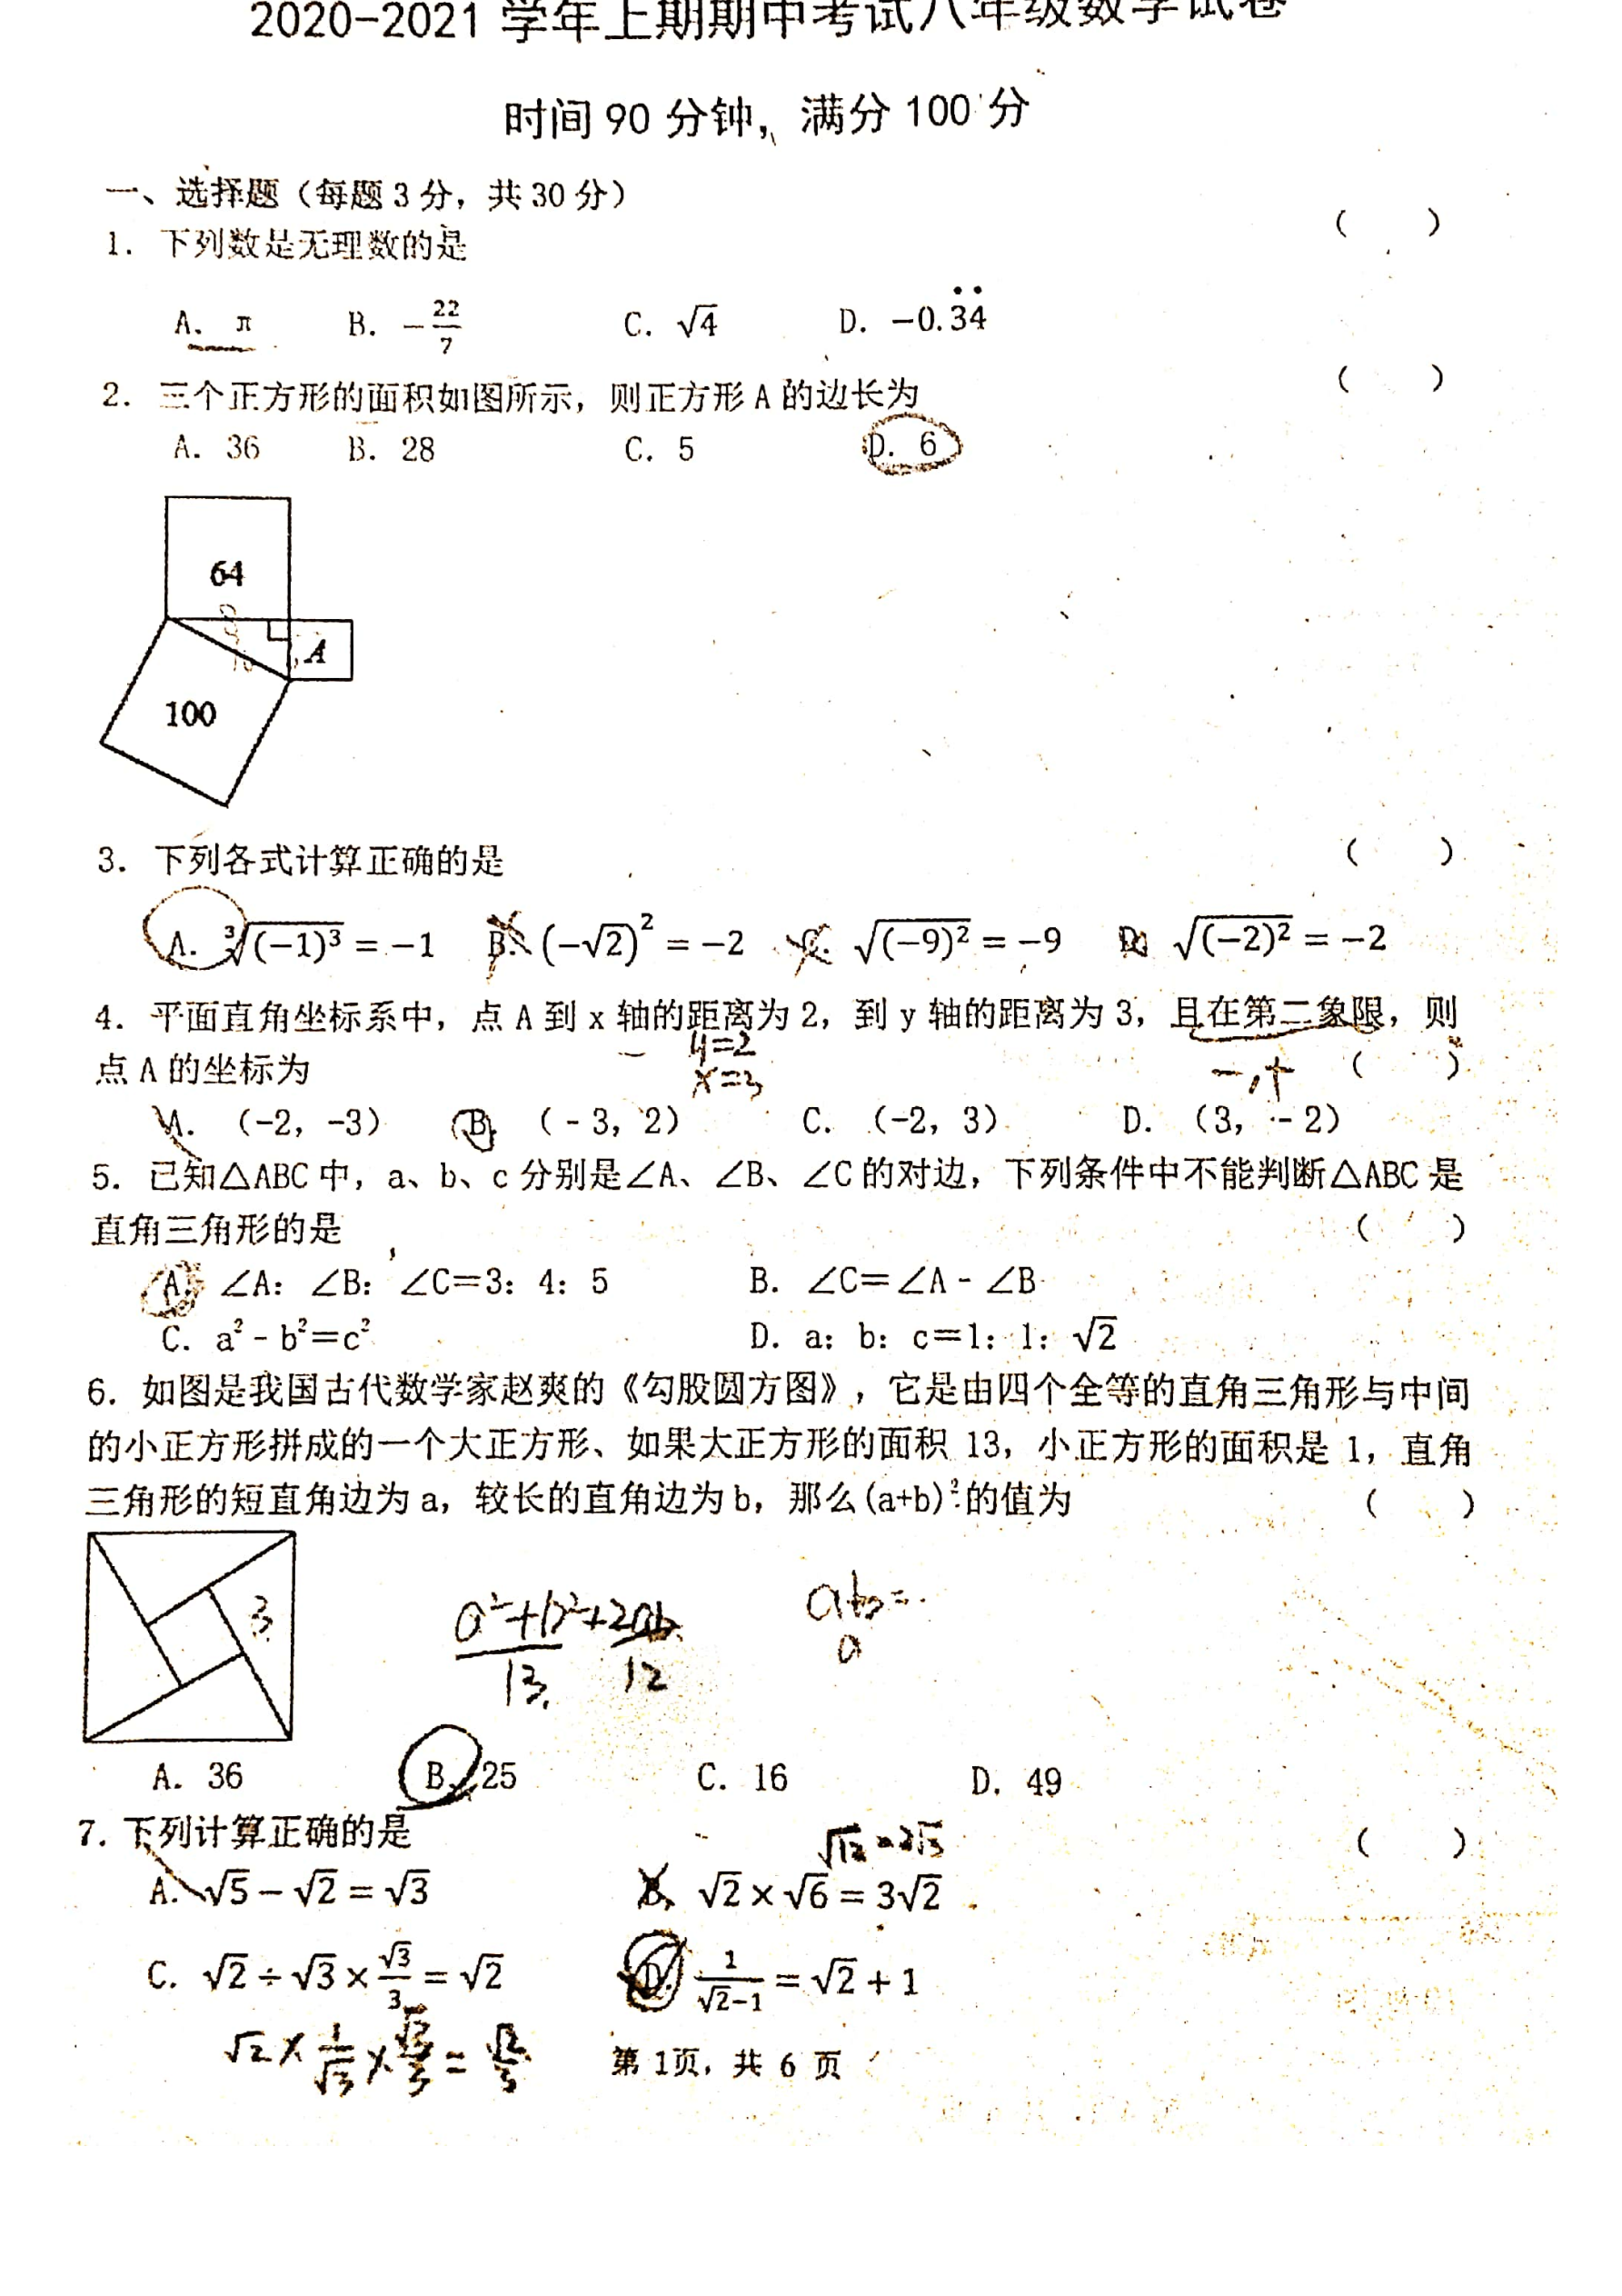 2020-2021 学年上期期中考试八年级数学试卷
时间 90 分钟，满分 100 分
一、选择题（每题 3 分，共 30 分）
1. 下列数是无理数的是 （ ）
A. π B. −22/7 C. √4 D. −0.3̇4̇
2. 三个正方形的面积如图所示，则正方形 A 的边长为 （ ）
A. 36 B. 28 C. 5 D. 6
64
A
100
3. 下列各式计算正确的是 （ ）
A. ∛(−1)³ = −1 B. (−√2)² = −2 C. √(−9)² = −9 D. √(−2)² = −2
4. 平面直角坐标系中，点 A 到 x 轴的距离为 2，到 y 轴的距离为 3，且在第二象限，则
y=2
点 A 的坐标为 x=3 −,+ （ ）
A. （-2，-3） B. （-3，2） C. （-2，3） D. （3，-2）
5. 已知△ABC 中，a、b、c 分别是∠A、∠B、∠C 的对边，下列条件中不能判断△ABC 是
直角三角形的是 （ ）
A. ∠A：∠B：∠C=3：4：5 B. ∠C=∠A-∠B
C. a²-b²=c² D. a：b：c=1：1：√2
6. 如图是我国古代数学家赵爽的《勾股圆方图》，它是由四个全等的直角三角形与中间
的小正方形拼成的一个大正方形、如果大正方形的面积 13，小正方形的面积是 1，直角
三角形的短直角边为 a，较长的直角边为 b，那么(a+b)²的值为 （ ）
3
a²+b²+2ab
13 12
A. 36 B. 25 C. 16 D. 49
7. 下列计算正确的是 （ ）
√12=2√3
A. √5−√2=√3 B. √2×√6=3√2
C. √2÷√3×√3/3=√2 D. 1/(√2−1)=√2+1
√2×1/√3×√3/3=√2/3
第 1页，共 6 页